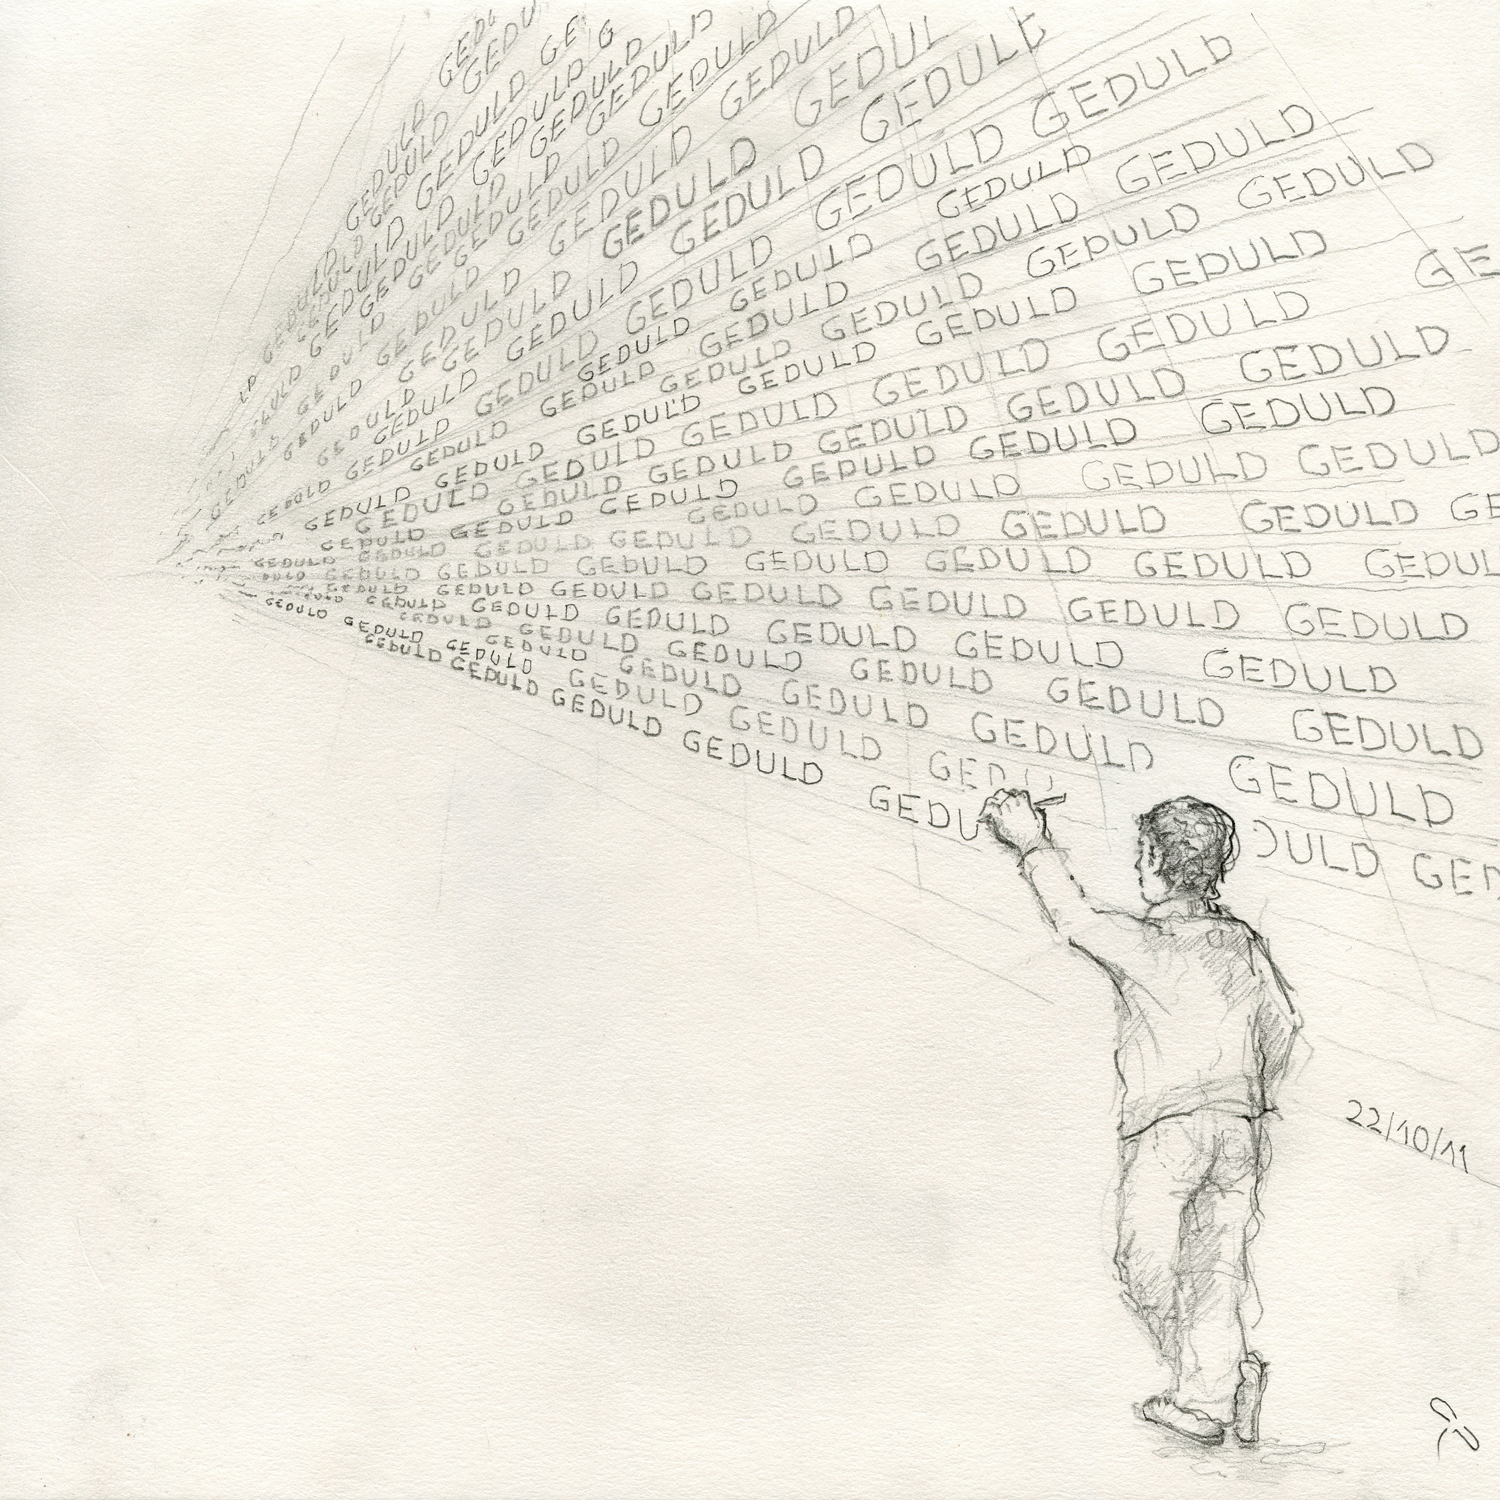 GEDU
GEDU
GEDULD GE
GEDULD GEDULD GEDULD G
GEDULD GEDULD GEDULD GEDULD
GEDULD GEDULD GEDULD GEDULD GEDULD
GEDULD GEDULD GEDULD GEDULD GEDULD
GEDULD GEDULD GEDULD GEDULD GEDUL
GEDULD GEDULD GEDULD GEDULD GEDULD
GEDULD GEDULD GEDULD GEDULD GEDULD GEDULD
GEDULD GEDULD GEDULD GEDULD GEDULD GEDULD
GEDULD GEDULD GEDULD GEDULD GEDULD GEDULD
GEDULD GEDULD GEDULD GEDULD GEDULD GEDULD GE
GEDULD GEDULD GEDULD GEDULD GEDULD GEDULD
GEDULD GEDULD GEDULD GEDULD GEDULD GEDULD
GEDULD GEDULD GEDULD GEDULD GEDULD GEDULD
GEDULD GEDULD GEDULD GEDULD GEDULD GEDULD
GEDULD GEDULD GEDULD GEDULD GEDULD GEDULD GE
GEDULD GEDULD GEDULD GEDULD GEDULD GEDULD GEDUL
GEDULD GEDULD GEDULD GEDULD GEDULD GEDULD GEDULD
GEDULD GEDULD GEDULD GEDULD GEDULD GEDULD
GEDULD GEDULD GEDULD GEDULD GEDULD GEDULD
GEDULD GEDULD GEDULD GEDULD GEDULD GEDULD
GEDULD GEDULD GEDULD GEDULD GEDU DULD GED
GEDULD GEDULD GEDULD GEDULD GEDU
22/10/11